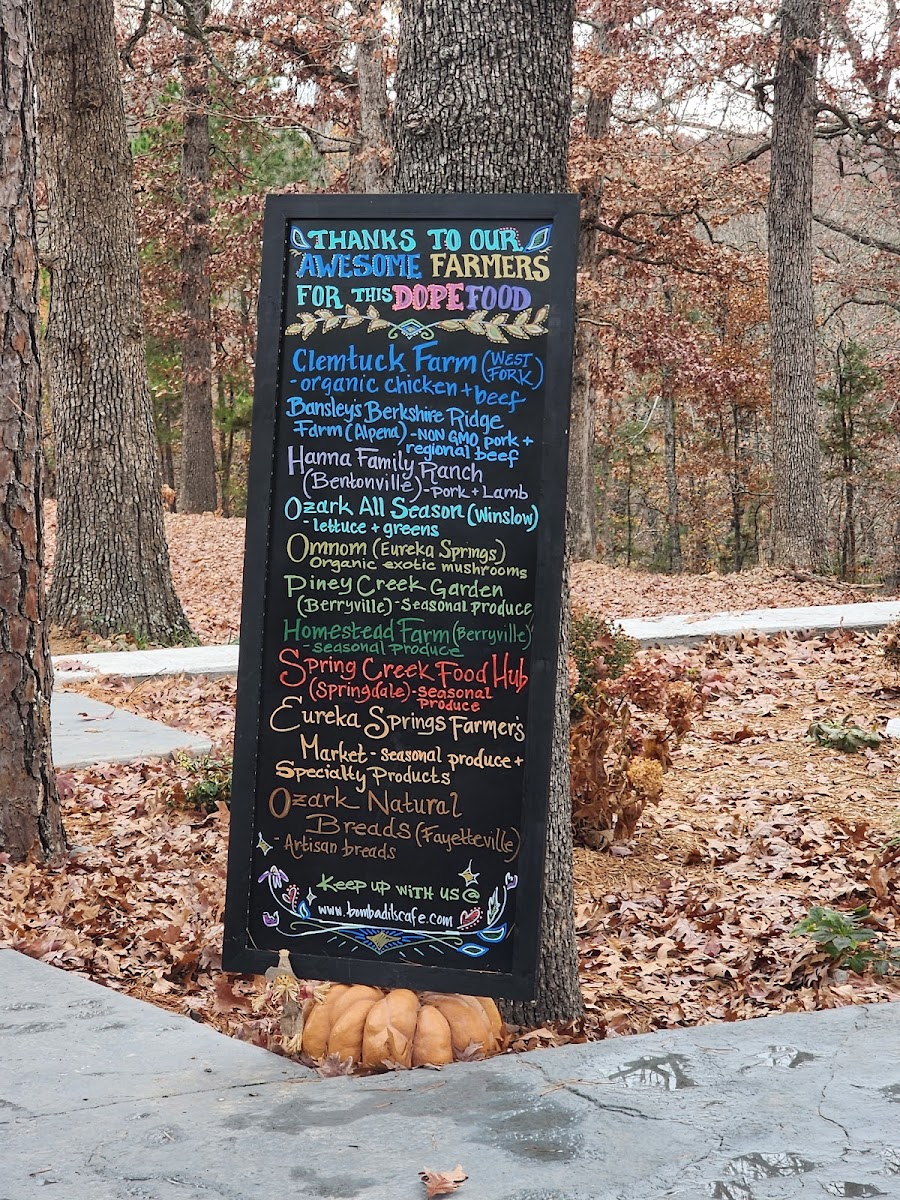 THANKS TO OUR
AWESOME FARMERS
FOR THIS DOPE FOOD
Clemtuck Farm (WEST
FORK)
- organic chicken + beef
Bansley's Berkshire Ridge
Farm (Alpena) - NON GMO pork +
regional beef
Hanna Family Ranch
(Bentonville) - Pork + Lamb
Ozark All Season (Winslow)
- lettuce + greens
Omnom (Eureka Springs)
Organic exotic mushrooms
Piney Creek Garden
(Berryville) - Seasonal produce
Homestead Farm (Berryville)
- seasonal produce
Spring Creek Food Hub
(Springdale) - seasonal
Produce
Eureka Springs Farmer's
Market - seasonal produce +
Specialty Products
Ozark Natural
Breads (Fayetteville)
- Artisan breads
Keep up with us @
www.bombadilscafe.com